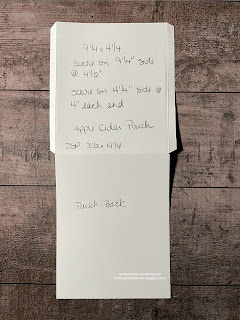 9 1/4 x 4 1/4
Score on 9 1/4" side
@ 4 1/2"
Score on 4 1/4" side @
4" each end
Apple Cider Pouch
DSP 3 1/2 x 4 1/4
Pouch Back